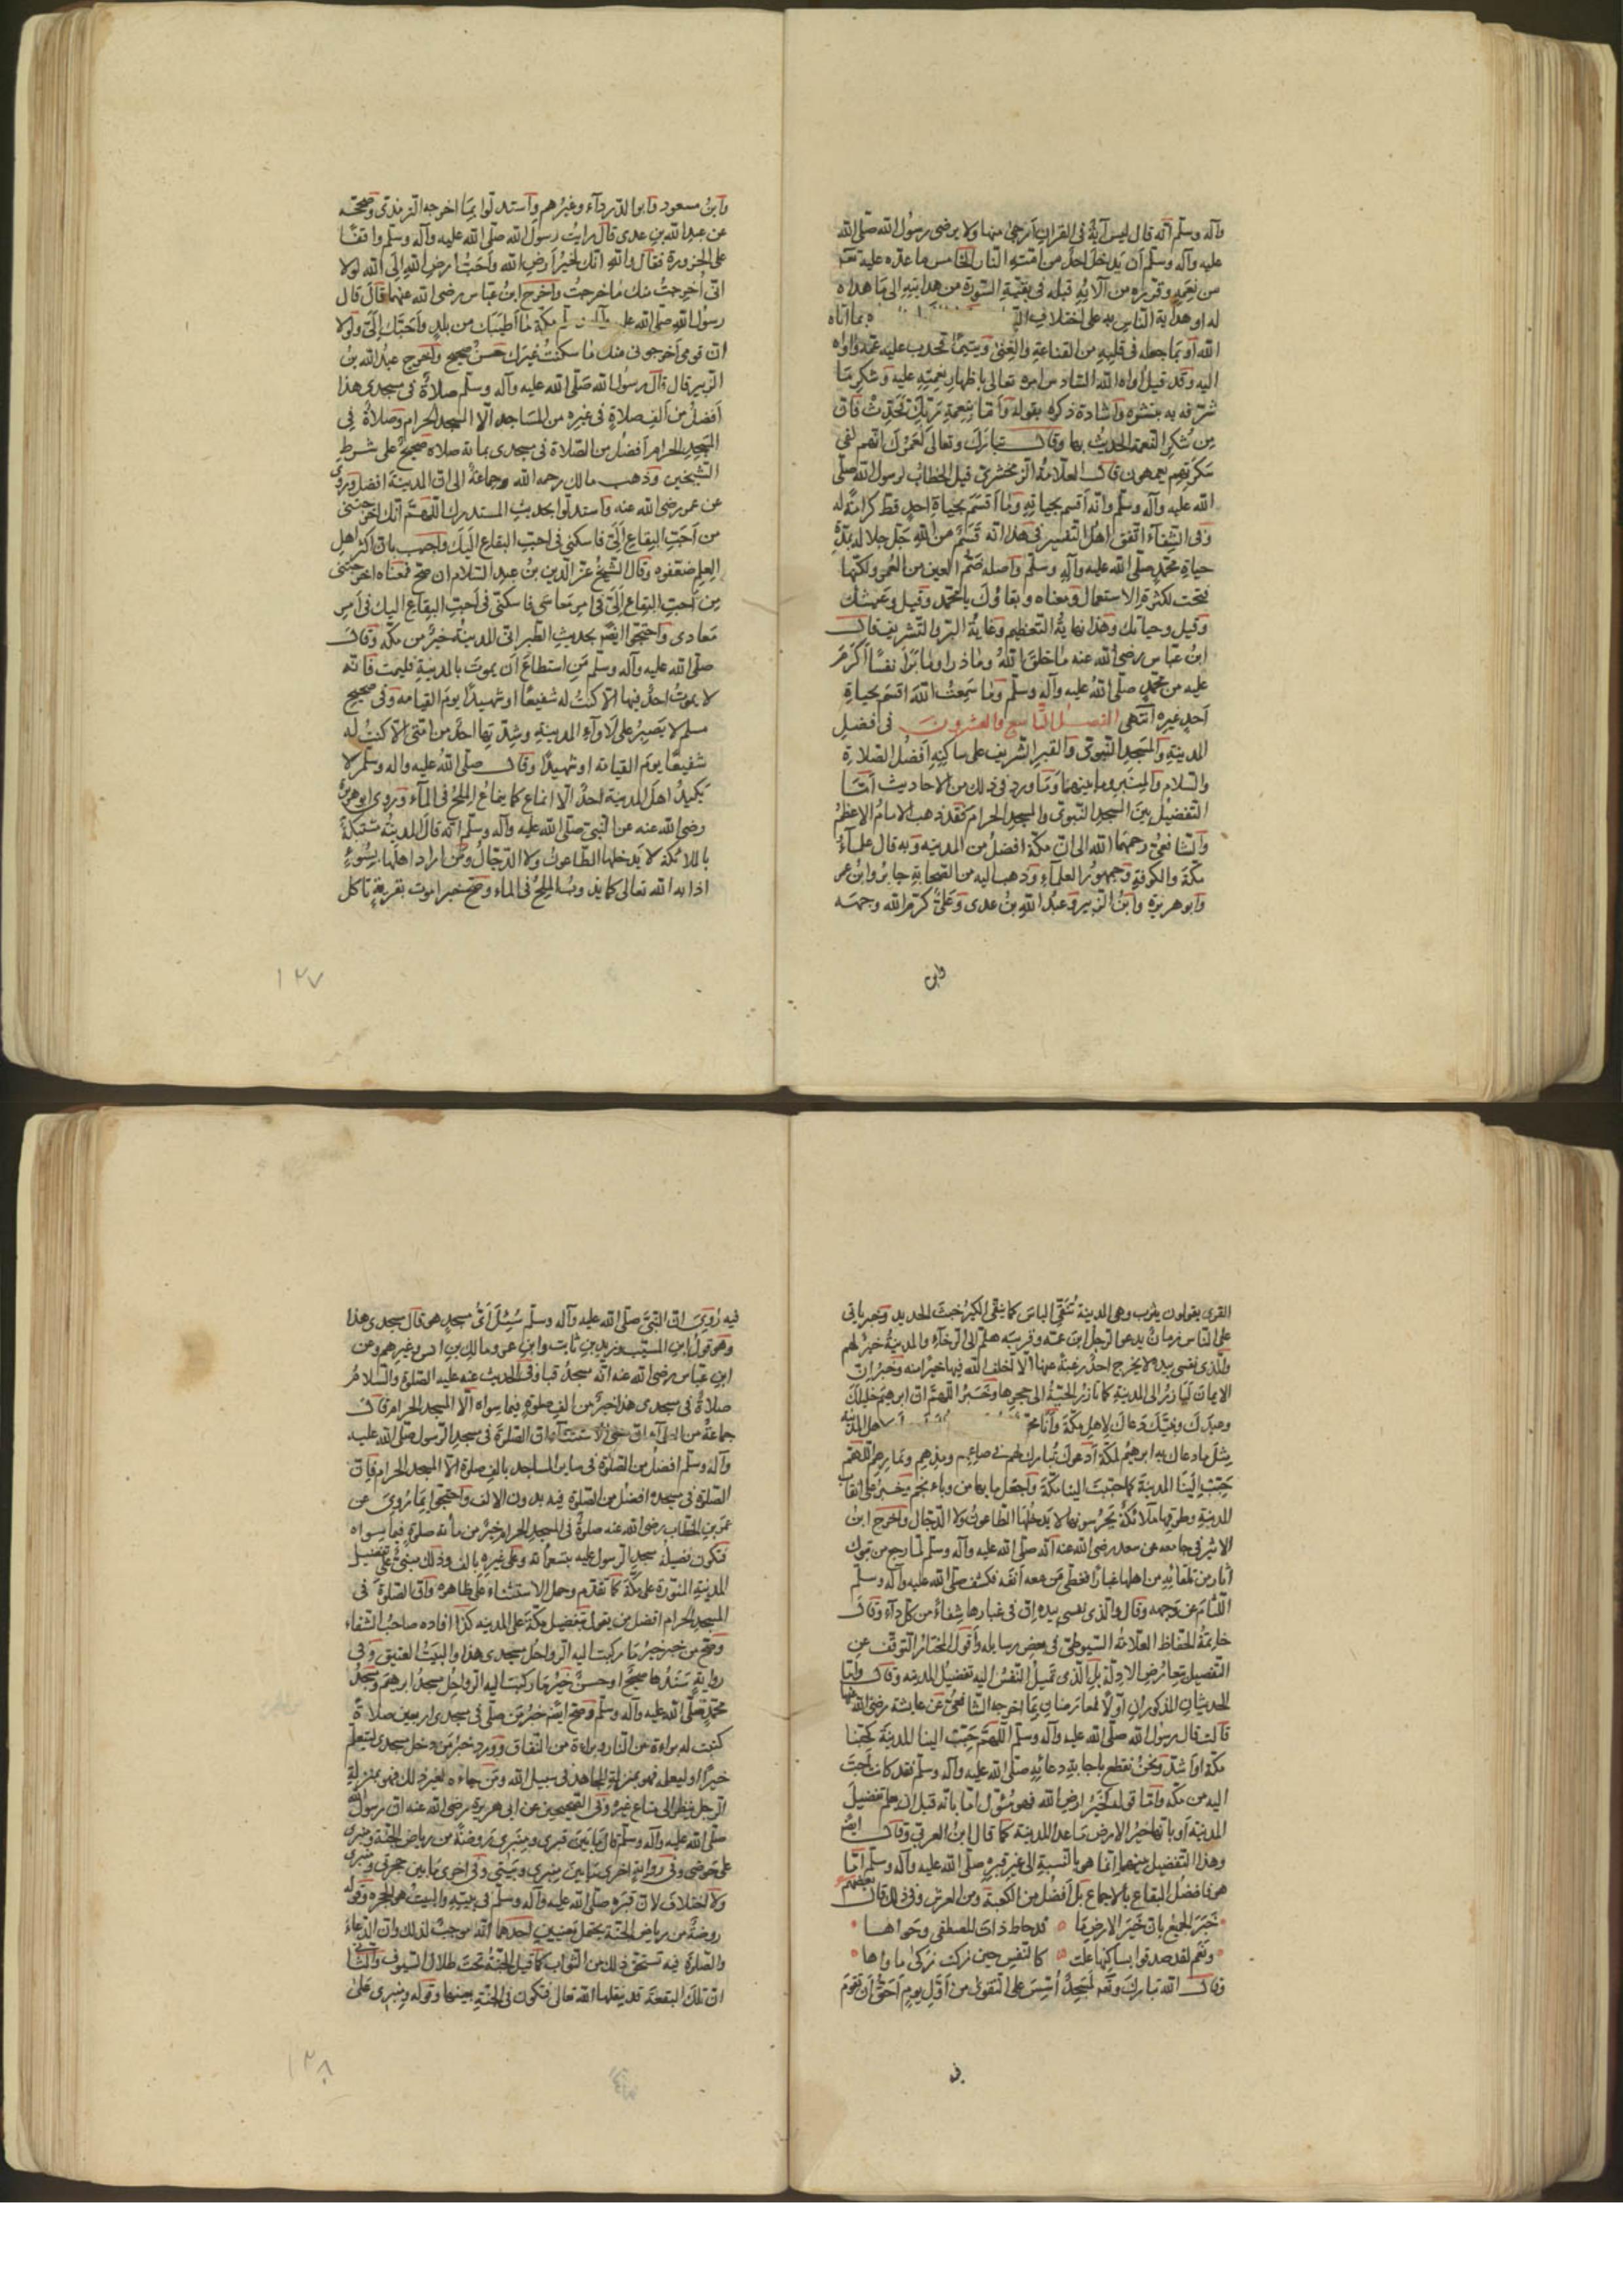 وآله وسلّم أنّه قال ليس آية في القرآن أرجى منها ولا يرضى رسول الله صلّى الله
عليه وآله وسلّم أن يدخل احدٌ من امّته النار الخامس ما عدّه عليه تعـ
من نِعَمِه وقرّره من آلائه قبله في بقيّة السّورة من هدايته إلى ما هداه
له او هداية الناس به على اختلاف التـ بما اتاه
الله أو بما جعله في قلبه من القناعة والغنى ويتيمًا فحدب عليه عمّه وآواه
اليه وقد قيل آواه الله السّادس امره تعالى باظهار نعمته عليه وشكر ما
شرّفه به بنشره واشادة ذكره بقوله وَأمّا بنعمة رَبّكَ فَحَدِّثْ فانّ
مِن شكر النعمة الحديث بها وقال تباركَ وتعالى لعَمرُكَ انّهم لفي
سَكرتِهم يعمهون قال العلّامة الزمخشري قيل الخطاب لرسول الله صلّى
الله عليه وآله وسلّم وانّه أقسم بحياته وما أقسَمَ بحياة احدٍ قط كرامةً له
وفي الشّفآء اتّفق أهل التفسير في هذا انّه قَسَمٌ من الله جَلّ جلاله بمدّة
حياة محمّدٍ صلّى الله عليه وآله وسلّم واصله ضمّ العين من العُمر ولكنّها
فتحت لكثرة الاستعمال ومعناه وبقاؤكَ يا محمّد وقيل وعيشك
وقيل وحياتك وهذا نهاية التعظيم وغاية البرّ والتشريف قال
ابن عبّاس رضي الله عنه ما خلق الله وما ذرا وما برَأ نفسًا أكرَمَ
عليه من محمّدٍ صلّى الله عليه وآله وسلّم وما سَمِعتُ الله اقسَم بحياة
أحدٍ غيره انتهى الفصل التّاسع والعشرون في فضل
المدينة والمسَجدِ النّبويّ والقبر الشّريف على ساكنه أفضل الصّلاة
والسّلام والمنبر وما بينهما وَما ورد في ذلك من الاحاديث أمّا
التفضيل بين المسجد النّبويّ والمسجد الحرام فقد ذهب الامام الاعظم
والشّافعيّ رحمهما الله الى انّ مكّة افضل من المدينه وَبه قال علمآء
مكّة والكوفة وجمهور العلمآء وَذهب اليه من الصّحابة جابر وابن عمر
وابو هريرة وابن الزّبير وعبد الله بن عدى وعليّ كرّم الله وجهه
وابن
وابن مسعود وابو الدّردآء وغيرُهم واستدلّوا بما اخرجه التّرمذي وصحّحه
عن عبد الله بن عدى قال رايت رسول الله صلّى الله عليه وآله وسلّم واقفًا
على الحزورة فقال والله انّك لخيرُ أرضِ الله وأحبُّ أرضِ الله إلى الله لولا
انّي أُخرجتُ منك ما خرجتُ واخرج ابن عبّاس رضي الله عنهما قال قال
رسول الله صلّى الله عليه وآله وسلّم مكّة ما أطيَبَكِ من بلدٍ وأحبَّكِ إليَّ ولولا
انّ قومي أخرجوني منك ما سكنتُ غيرَك حَسَنٌ صحيح وأخرج عبد الله بن
الزّبير قال قال رسول الله صلّى الله عليه وآله وسلّم صلاةٌ في مسجدي هذا
أفضل من ألفِ صلاةٍ في غيره من المساجد الّا المسجد الحرام وصلاةٌ في
المسَجد الحرام أفضل من الصّلاة في مسجدي بمائة صلاة صحيحٌ على شرطِ
الشيخين وَذهب مالك رحمه الله وجماعة الى انّ المدينة افضل وروى
عن عمر رضي الله عنه واستدلّوا بحديث المستدرك اللّهمّ انّك اخرجتني
من أحبّ البقاع اليّ فاسكنّي في احبّ البقاع اليك وأجيب بانّ اكثر اهل
العلم ضعّفوه وقال الشّيخ عزّ الدّين بن عبد السّلام ان صحّ فمعناه اخرجتني
مِن أحبّ البقاع إليّ في امر معاشي فاسكنّي في أحبّ البقاع اليك في أمرِ
معادى واحتجّوا ايضًا بحديث الطّبراني المدينة خيرٌ من مكّه وقال
صلّى الله عليه وآله وسلّم من استطاع أن يموت بالمدينة فليمت فانّه
لا يموتُ احدٌ فيها الّا كنتُ له شفيعًا او شهيدًا يوم القيامه وفي صحيح
مسلم لا يَصبِرُ على لأوآءِ المدينةِ وشدّتِها احدٌ من امّتي الّا كنتُ له
شفيعًا يوم القيامه او شهيدًا وقال صلّى الله عليه واله وسلّم لا
يكيدُ اهل المدينة احدٌ الّا انماع كما ينماع الملح في المآء وروى ابو هريرة
رضي الله عنه عن النّبي صلّى الله عليه وآله وسلّم انّه قال المدينة مشتبكةٌ
بالملائكة لا يدخلها الطّاعون ولا الدّجال ومن اراد اهلها بسُوءٍ
اذابه الله تعالى كما يذوب الملح في الماء وصحّ خبر امرت بقريةٍ تاكل
١٢٧
القرى يقولون يثرب وهي المدينة تُنَقّي الناس كما ينقّي الكيرُ خبثَ الحديد وخبر ياتي
على النّاس زمانٌ يدعو الرّجل ابن عمّه وقريبه هلمّ الى الرّخآء والمدينة خيرٌ لهم
والّذي نفسي بيده لا يخرج احدٌ رغبةً عنها الّا اخلف الله فيها خيرًا منه وخبرُ انّ
الايمان ليَأرزُ الى المدينة كما تأرز الحيّة الى جحرها وخبرُ اللّهمّ انّ ابرهيم خليلك
وعبدك ونبيّك دعاك لاهل مكّة وأنا محمّد لأهل المدينة
مثل ما دعاك به ابرهيم لمكّة أدعوك تبارك لهم في صاعهم ومدهم وثمارهم اللّهمّ
حَبِّب إلَينا المدينة كما حبّبت الينا مكّة واجعل ما بها من وباء بخمّ وخبرُ على انقاب
المدينة وطرقها ملائكةٌ يحرسونها لا يدخلها الطاعون ولا الدّجال واخرج ابن
الاثير في جامعه عن سعد رضي الله عنه انّه صلّى الله عليه وآله وسلّم لمّا رجع من تبوك
اثار من تلقّا نِهِ من اهلها غبارًا فغطّى مَن معه أنفه فكشف صلّى الله عليه وآله وسلّم
اللّثام عن وجهه وقال والّذي نفسي بيده انّ في غبارها شفاءً من كلّ دآء وقال
خاتمة الحفّاظ العلّامة السّيوطي في بعض رسايله وأقول المختار التوقف عن
التفضيل لتعارُض الادلّة بل الّذي تميلُ النّفس اليه تفضيل المدينه وقال وامّا
الحديثان المذكوران اوّلًا فمعارضان بما اخرجه الشّافعيّ عن عايشة رضي الله عنها
قالت قال رسول الله صلّى الله عليه وآله وسلّم اللّهمّ حبّب الينا المدينة كحبّنا
مكّة او اشدّ ونحن نقطع باجابة دعائه صلّى الله عليه وآله وسلّم فقد كانت أحبّ
اليه من مكّه وامّا قوله لخيرُ ارض الله فهو مؤوّل امّا بانّه قبل ان يعلم تفضيل
المدينة أو بانّها خيرُ الارض ما عدا المدينة كما قال ابن العربي وقال ايضًا
وهذا التّفضيل بينهما انّما هو بالنّسبة الى غير قبره صلّى الله عليه وآله وسلّم امّا
هو فافضل البقاع بالاجماع بل أفضل من الكعبة ومن العرش وفي ذلك قال بعضهم
جَزَمَ الجميعُ بانّ خير الارض ما قد حاط ذات المصطفى وحَواها
ونعم لقد صدقوا بساكنها علت كالنفس حين زكت زكى ماواها
وقال الله تبارك وتعالى لمسجدٌ أُسِّسَ على التّقوى من أوّل يومٍ أحقُّ أن تقوم
فيه
فيه رُوِيَ انّ النّبيّ صلّى الله عليه وآله وسلّم سُئل أيّ مسجدٍ هو قال مسجدي هذا
وهو قول ابن المسيّب وزيد بن ثابت وابن عمر ومالك بن انس وغيرهم وعن
ابن عبّاس رضي الله عنه انّه مسجدُ قبا وفي الحديث عنه عليه الصّلوة والسّلام
صلاةٌ في مسجدي هذا خيرٌ من الف صلوةٍ فيما سواه الّا المسجد الحرام وقال
جماعةٌ من العلمآء انّ معنى الاستثناء انّ الصّلوة في مسجد الرّسول صلّى الله عليه
وآله وسلّم افضل من الصّلوة في ساير المساجد بالف صلوة الّا المسجد الحرام فانّ
الصّلوة في مسجده افضل من الصّلوة فيه بدون الالف واحتجّوا بما رُوِيَ عن
عمر بن الخطّاب رضي الله عنه صلوةٌ في المسجد الحرام خيرٌ من مأئة صلوةٍ فيما سواه
فتكون فضيلة مسجد الرّسول عليه بتسعمائة وعلى غيره بالف وذلك مبنيٌّ على تفضيل
المدينة المنوّرة على مكّة كما تقدّم وحمل الاستثناء على ظاهره وانّ الصّلوة في
المسجد الحرام افضل من يقول بتفضيل مكّة على المدينه كذا افاده صاحبُ الشّفاء
وصحّ من خبر خيرُ ما ركبت اليه الرّواحل مسجدي هذا والبيتُ العتيق وفي
روايةٍ سندُها صحيحٌ او حسنٌ خيرُ ما ركبت اليه الرّواحل مسجدُ ابرهيم ومسجدُ
محمّدٍ صلّى الله عليه وآله وسلّم وصحّ ايضًا خبرُ مَن صلّى في مسجدي اربعين صلاةً
كتبت له براءة من النّار وبراءة من النّفاق وورد خبرُ من دخل مسجدي ليتعلّم
خيرًا او ليعلّمه فهو بمنزلة المجاهد في سبيل الله ومن جاءه لغير ذلك فهو بمنزلة
الرّجل ينظر الى متاع غيره وفي الصّحيحين عن ابي هريرة رضي الله عنه انّ رسول الله
صلّى الله عليه وآله وسلّم قال ما بين قبري ومنبري روضةٌ من رياض الجنّة ومنبري
على حوضي وفي روايةٍ اخرى ما بين منبري وبيتي وفي اخرى ما بين حجرتي ومنبري
ولا اختلاف لانّ قبره صلّى الله عليه وآله وسلّم في بيته والبيت هو الحجره وقوله
روضةٌ من رياض الجنّة يحتمل معنيين احدهما انّه موجبٌ لذلك وانّ الدّعاء
والصّلوة فيه تستحقّ ذلك من الثّواب كما قيل الجنّة تحت ظلال السّيوف والثّاني
انّ تلك البقعة قد ينقلها الله تعالى فتكون في الجنّة بعينها وقوله ومنبري على
١٢٨